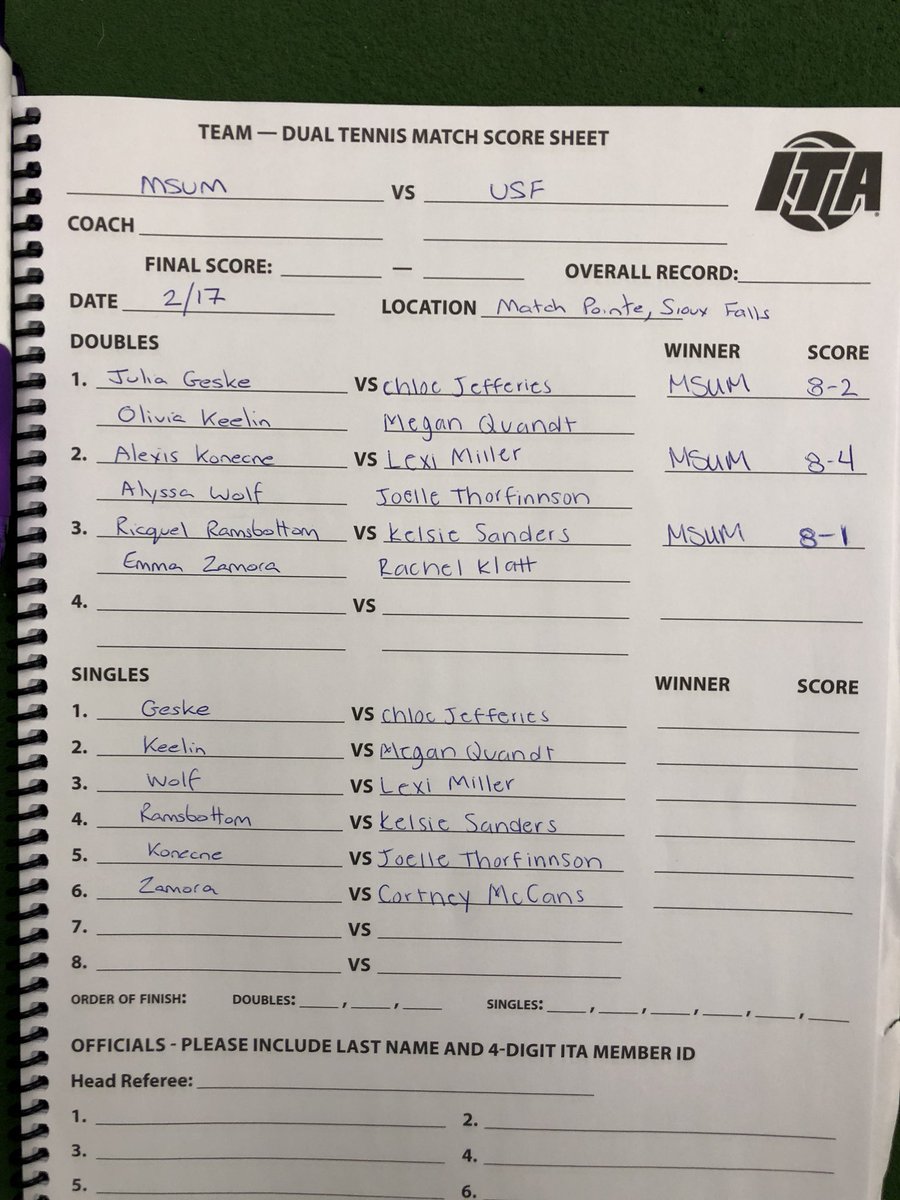 TEAM — DUAL TENNIS MATCH SCORE SHEET
ITA
MSUM VS USF
COACH
FINAL SCORE: — OVERALL RECORD:
DATE 2/17 LOCATION Match Pointe, Sioux Falls
DOUBLES WINNER SCORE
1. Julia Geske VS Chloe Jefferies MSUM 8-2
Olivia Keelin Megan Quandt
2. Alexis Konecne VS Lexi Miller MSUM 8-4
Alyssa Wolf Joelle Thorfinnson
3. Ricquel Ramsbottom VS Kelsie Sanders MSUM 8-1
Emma Zamora Rachel Klatt
4. VS
SINGLES WINNER SCORE
1. Geske VS Chloe Jefferies
2. Keelin VS Megan Quandt
3. Wolf VS Lexi Miller
4. Ramsbottom VS Kelsie Sanders
5. Konecne VS Joelle Thorfinnson
6. Zamora VS Cortney McCans
7. VS
8. VS
ORDER OF FINISH: DOUBLES: , , SINGLES: , , , , ,
OFFICIALS - PLEASE INCLUDE LAST NAME AND 4-DIGIT ITA MEMBER ID
Head Referee:
1. 2.
3. 4.
5. 6.